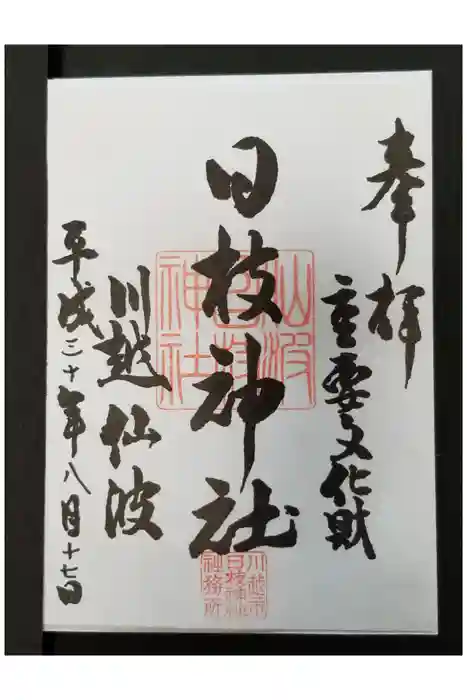 奉拝
重要文化財
日枝神社
川越仙波
平成三十年八月十七日
仙波
日枝
神社
川越市
日枝神社
社務所